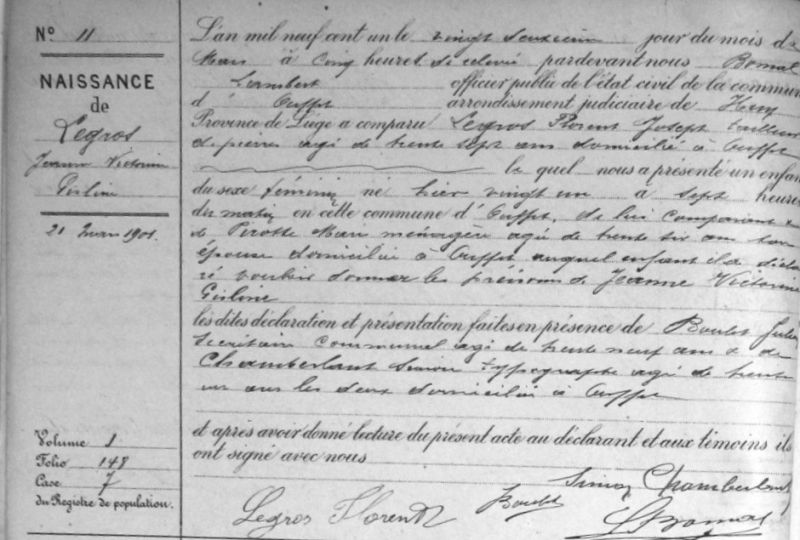 N° 11
NAISSANCE
de
Legros
Jeanne Victorine
Gisline
21 Mars 1901.
Volume 1
Folio 148
Case 7
du Registre de population.
L'an mil neuf cent un le vingt deuxième jour du mois de
Mars à cinq heures de relevée pardevant nous Bomal
Lambert officier public de l'état civil de la commune
d' Ouffet arrondissement judiciaire de Huy
Province de Liége a comparu Legros Florent Joseph tailleur
de pierres agé de trente sept ans domicilié à Ouffet
le quel nous a présenté un enfant
du sexe féminin né hier vingt un à sept heures
du matin en cette commune d' Ouffet, de lui comparant &
de Pirotte Marie ménagère agée de trente six ans son
épouse domiciliée à Ouffet auquel enfant il a décla
ré vouloir donner les prénoms de Jeanne Victorine
Gisline
les dites déclaration et présentation faites en présence de Boulet Jules
Secrétaire Communal agé de trente neuf ans & de
Chamberlant Simon typographe agé de trente
un ans les deux domiciliés à Ouffet
et après avoir donné lecture du présent acte au déclarant et aux témoins ils
ont signé avec nous
Simon Chamberlant
Legros Florent Boulet L Bomal